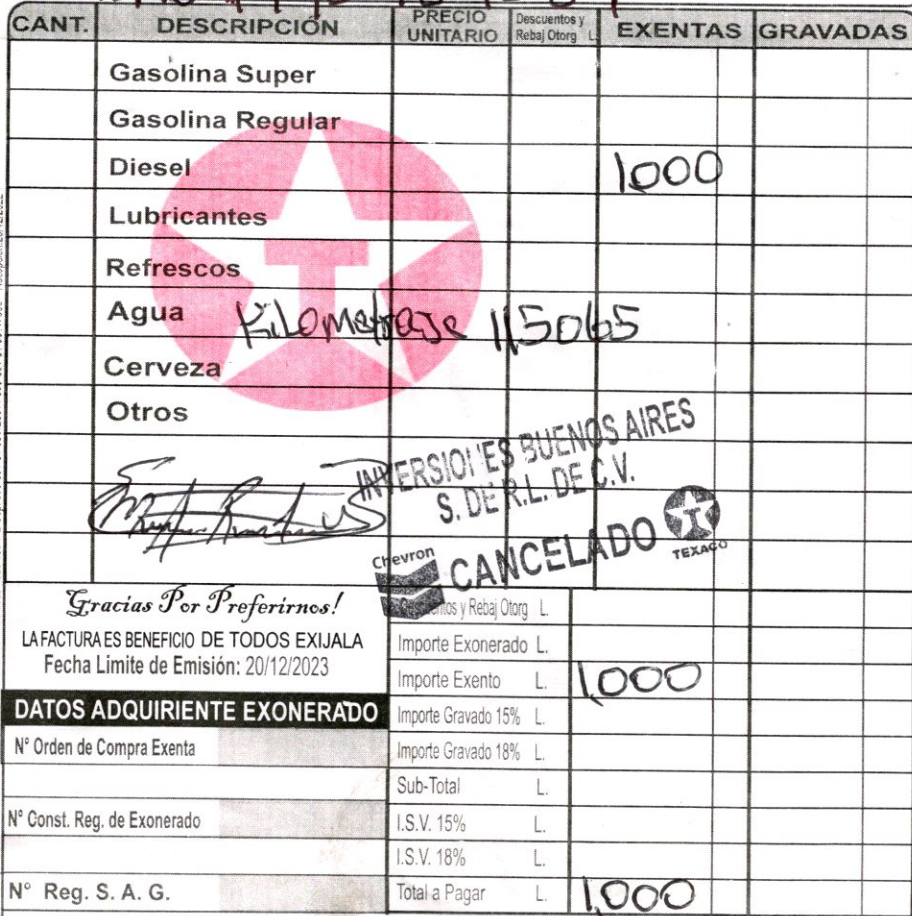 CANT. DESCRIPCIÓN PRECIO UNITARIO Descuentos y Rebaj Otorg L. EXENTAS GRAVADAS
Gasolina Super
Gasolina Regular
Diesel 1,000
Lubricantes
Refrescos
Agua
Kilometraje 115065
Cerveza
Otros
INVERSIONES BUENOS AIRES
S. DE R.L. DE C.V.
Chevron CANCELADO TEXACO
Gracias Por Preferirnos!
LA FACTURA ES BENEFICIO DE TODOS EXIJALA
Fecha Limite de Emisión: 20/12/2023
DATOS ADQUIRIENTE EXONERADO
N° Orden de Compra Exenta
N° Const. Reg. de Exonerado
N° Reg. S. A. G.
Descuentos y Rebaj Otorg L.
Importe Exonerado L.
Importe Exento L. 1,000
Importe Gravado 15% L.
Importe Gravado 18% L.
Sub-Total L.
I.S.V. 15% L.
I.S.V. 18% L.
Total a Pagar L. 1,000